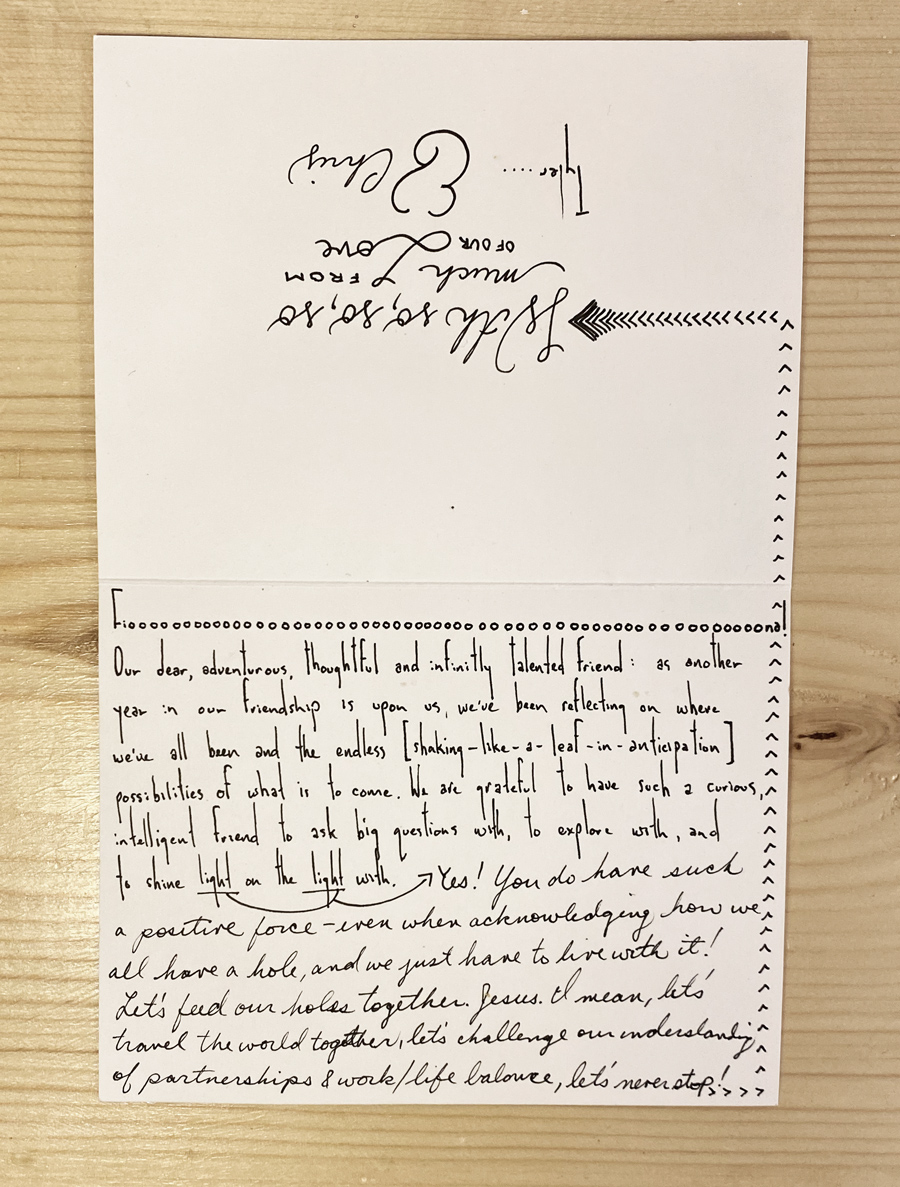 Fiooooooooooooooooooooooooooooooooooooooooooooooooooona!
Our dear, adventurous, thoughtful and infinitly talented friend: as another
year in our friendship is upon us, we've been reflecting on where
we've all been and the endless [shaking-like-a-leaf-in-anticipation]
possibilities of what is to come. We are grateful to have such a curious,
intelligent friend to ask big questions with, to explore with, and
to shine light on the light with. → Yes! You do have such
a positive force - even when acknowledging how we
all have a hole, and we just have to live with it!
Let's feed our holes together. Jesus. I mean, let's
travel the world together, let's challenge our understanding
of partnerships & work/life balance, let's never stop!
With so, so, so
much FROM
OF OUR Love
Tyler..... & Chris